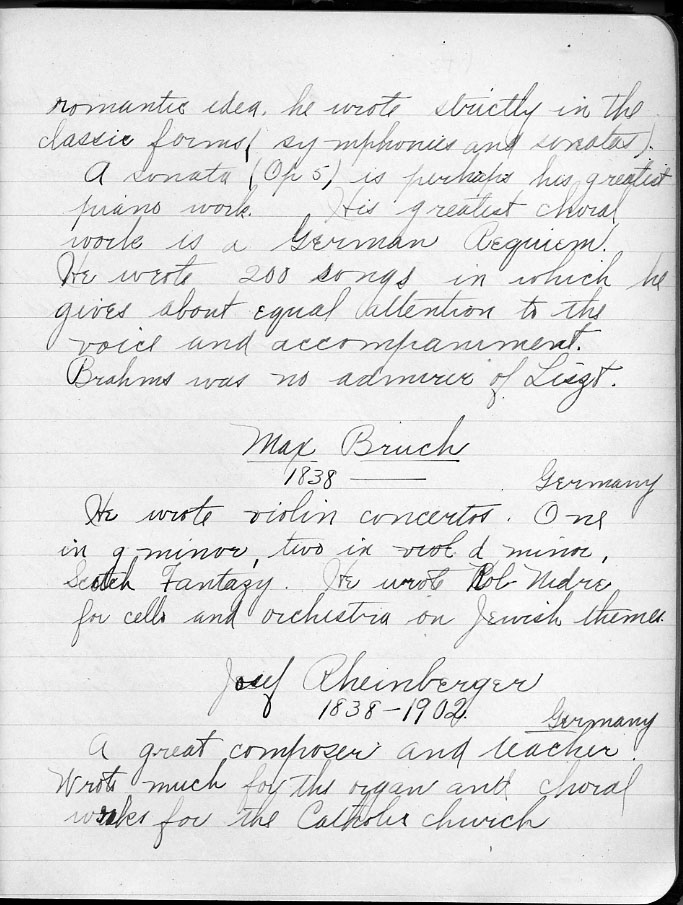 romantic idea. he wrote strictly in the
classic forms (symphonies and sonatas).
A sonata (Op 5) is perhaps his greatest
piano work. His greatest choral
work is a German Requiem.
He wrote 200 songs in which he
gives about equal attention to the
voice and accompaniment.
Brahms was no admirer of Liszt.
Max Bruch
1838 ——
Germany
He wrote violin concertos. One
in g minor, two in d minor,
Scotch Fantazy. He wrote Kol Nidre
for cello and orchestra on Jewish themes.
Josef Rheinberger
1838-1902.
Germany
A great composer and teacher.
Wrote much for the organ and choral
works for the Catholic church